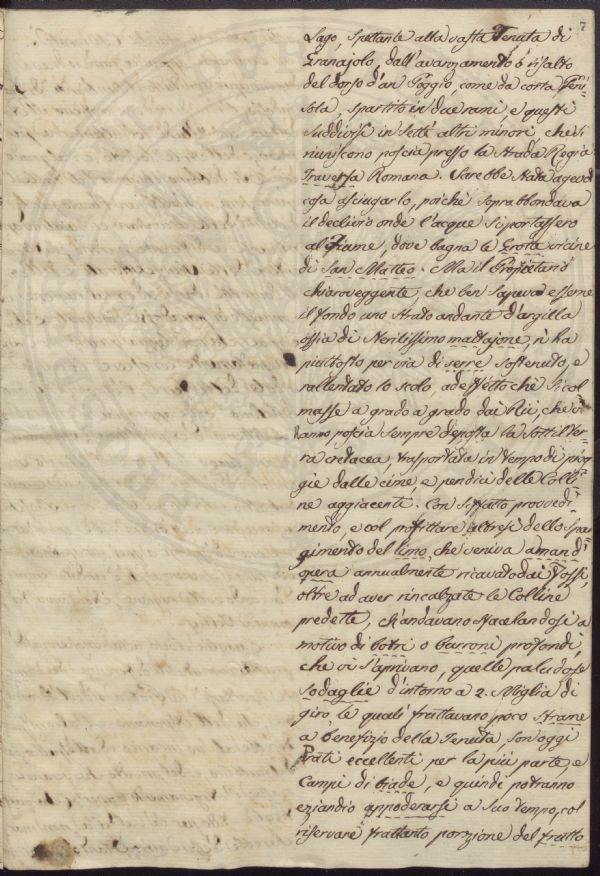 7
Lago, spettante alla vasta Tenuta di
Granajolo, dall'avanzamento o risalto
del dorso d'un Poggio, come da corta Peni=
sola, spartito in due rami, e questi
suddivisi in sette altri minori, che si
riuniscono poscia presso la Strada Regia
Traversa Romana. Sarebbe stata agevol
cosa asciugarlo, poichè soprabbondava
il declivio onde l'acque si portassero
al Fiume, dove bagna le Grotte vicine
di San Matteo. Ma il Proprietario
chiaroveggente, che ben sapeva esserne
il fondo uno strato andante d'argilla
ossia di sterilissimo mattajone, n'ha
piuttosto per via di serre sostenuto, e
rallentato lo scolo, ad effetto che si col
masse a grado a grado dai Rii, che vi
hanno poscia sempre deposta la sottil ter
ra cretacea, trasportata in tempo di piog
gie dalle cime, e pendici delle Colli=
ne aggiacenti. Con siffatto provvedi=
mento, e col profittare altresì dello spar
gimento del limo, che veniva a man d'
opera annualmente ricavato dai Fossi,
oltre ad aver rincalzate le Colline
predette, ch'andavano staccandosi a
motivo di botri o burroni profondi,
che vi s'aprivano, quelle paludose
sodaglie d'intorno a 2. Miglia di
giro, le quali fruttavano poco strame
a benefizio della Tenuta, son oggi
Prati eccellenti per la più parte, e
Campi di biade, e quindi potranno
eziandio appoderarsi a suo tempo, col
riservare frattanto porzione del frutto